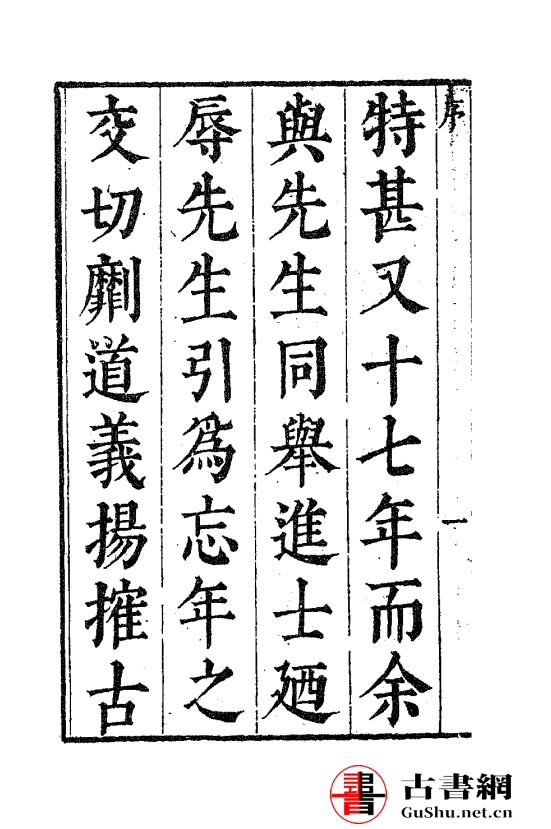 序
一
特甚又十七年而余
與先生同舉進士廼
辱先生引爲忘年之
交切劘道義揚搉古
書 古書網
GuShu.net.cn